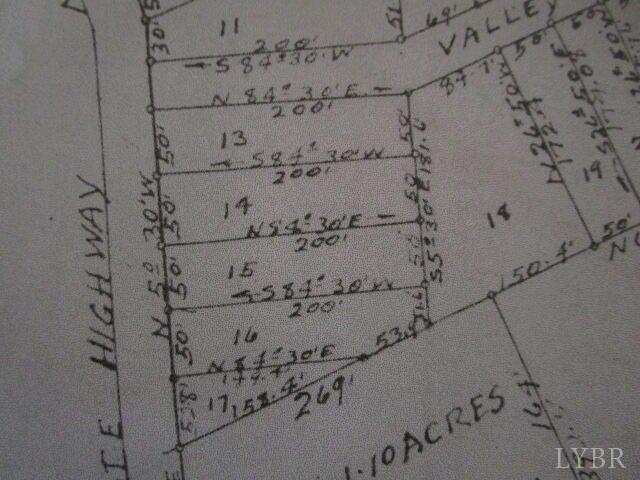 11
30'
200'
S 84° 30' W
69'
VALLEY
50'
N 84° 30' E
200'
87.1'
N 26° 50' W
172.4
13
50'
S 84° 30' W
200'
50'
S 5° 30' E 181.6'
14
50'
N 84° 30' E
200'
50'
18
15
50'
S 84° 30' W
200'
50'
N 5° 30' W
16
50'
N 84° 30' E
53.9
150.4'
50'
17
158.4'
269'
52.8'
HIGHWAY
1.10 ACRES
LYBR